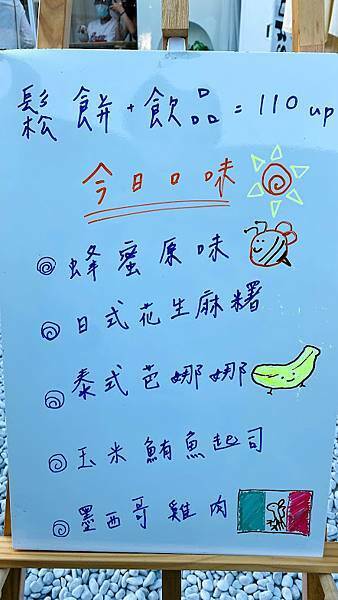 鬆餅+飲品=110up
今日口味
蜂蜜原味
日式花生麻糬
泰式芭娜娜
玉米鮪魚起司
墨西哥雞肉